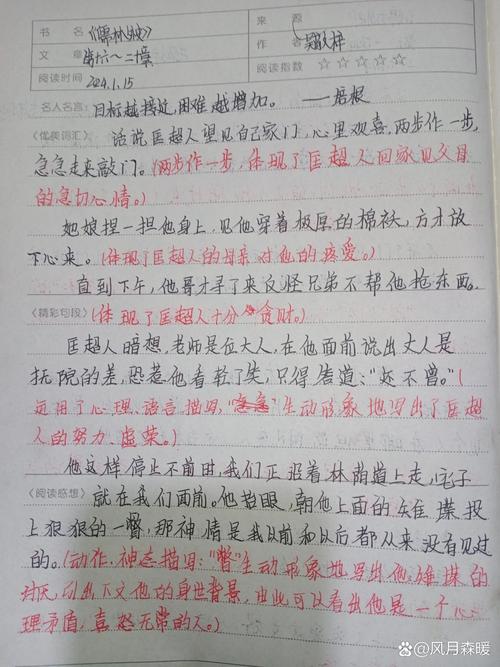 书 名《儒林外史》 来 源
文 章 第十六~二十章 作 者 吴敬梓
阅读时间 2024.1.15 阅读指数 ☆☆☆☆☆
名人名言: 目标越接近,困难越增加。 ——培根
〈优美词汇〉 话说匡超人望见自己家门,心里欢喜,两步作一步,
急急走来敲门。(两步作一步,体现了匡超人回家见父母
的急切心情。)
她娘捏一捏他身上,见他穿着极厚的棉袄,方才放
下心来。(体现了匡超人的母亲对他的疼爱。)
直到下午,他哥才寻了来反怪兄弟不帮他抢东西。
〈精彩句段〉(体现了匡超人十分贪财。)
匡超人暗想,老师是位大人,在他面前说出丈人是
抚院的差,恐惹他看轻了笑,只得答道:“还不曾。”(
运用了心理、语言描写,生动形象地写出了匡超
人的努力、虚荣。)
他这样停止不前时,我们正沿着林荫道上走,宅子
〈阅读感想〉 就在我们面前。他抬眼,朝他上面的雉堞投
上狠狠的一瞥,那神情是我以前和以后都从来没看见过
的。(动作、神态描写:“瞥”生动形象地写出他对雉堞的
讨厌,引出下文他的身世背景,由此可以看出他是一个心
理矛盾,喜怒无常的人。)
@风月森暖